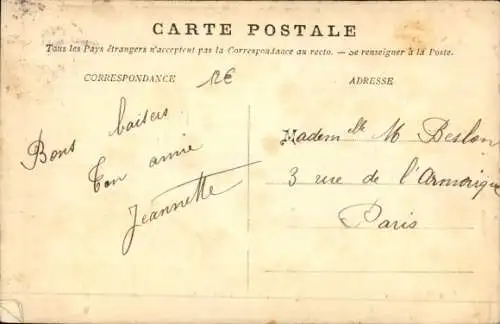 CARTE POSTALE
Tous les Pays étrangers n'acceptent pas la Correspondance au recto. — Se renseigner à la Poste.
CORRESPONDANCE
12€
ADRESSE
Bons baisers
Ton amie
Jeannette
Mademlle M Beslon
3 rue de l'Armorique
Paris